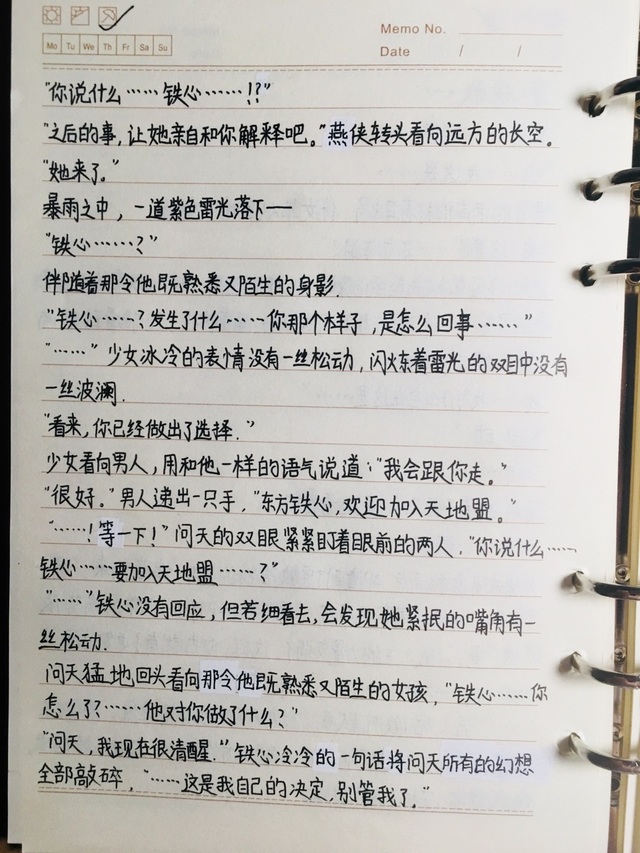 Memo No.
Mo Tu We Th Fr Sa Su
Date / /
“你说什么……铁心……!?”
“之后的事，让她亲自和你解释吧。”燕侠转头看向远方的长空。
“她来了。”
暴雨之中，一道紫色雷光落下——
“铁心……?”
伴随着那令他既熟悉又陌生的身影.
“铁心……?发生了什么……你那个样子，是怎么回事……”
“……”少女冰冷的表情没有一丝松动，闪烁着雷光的双目中没有
一丝波澜.
“看来，你已经做出了选择.”
少女看向男人，用和他一样的语气说道：“我会跟你走。”
“很好。”男人递出一只手，“东方铁心，欢迎加入天地盟。”
“……!等一下!”问天的双眼紧紧盯着眼前的两人，“你说什么……
铁心……要加入天地盟……?”
“……”铁心没有回应，但若细看去，会发现她紧抿的嘴角有一
丝松动.
问天猛地回头看向那令他既熟悉又陌生的女孩，“铁心……你
怎么了?……他对你做了什么?”
“问天，我现在很清醒.”铁心冷冷的一句话将问天所有的幻想
全部敲碎，“……这是我自己的决定，别管我了。”